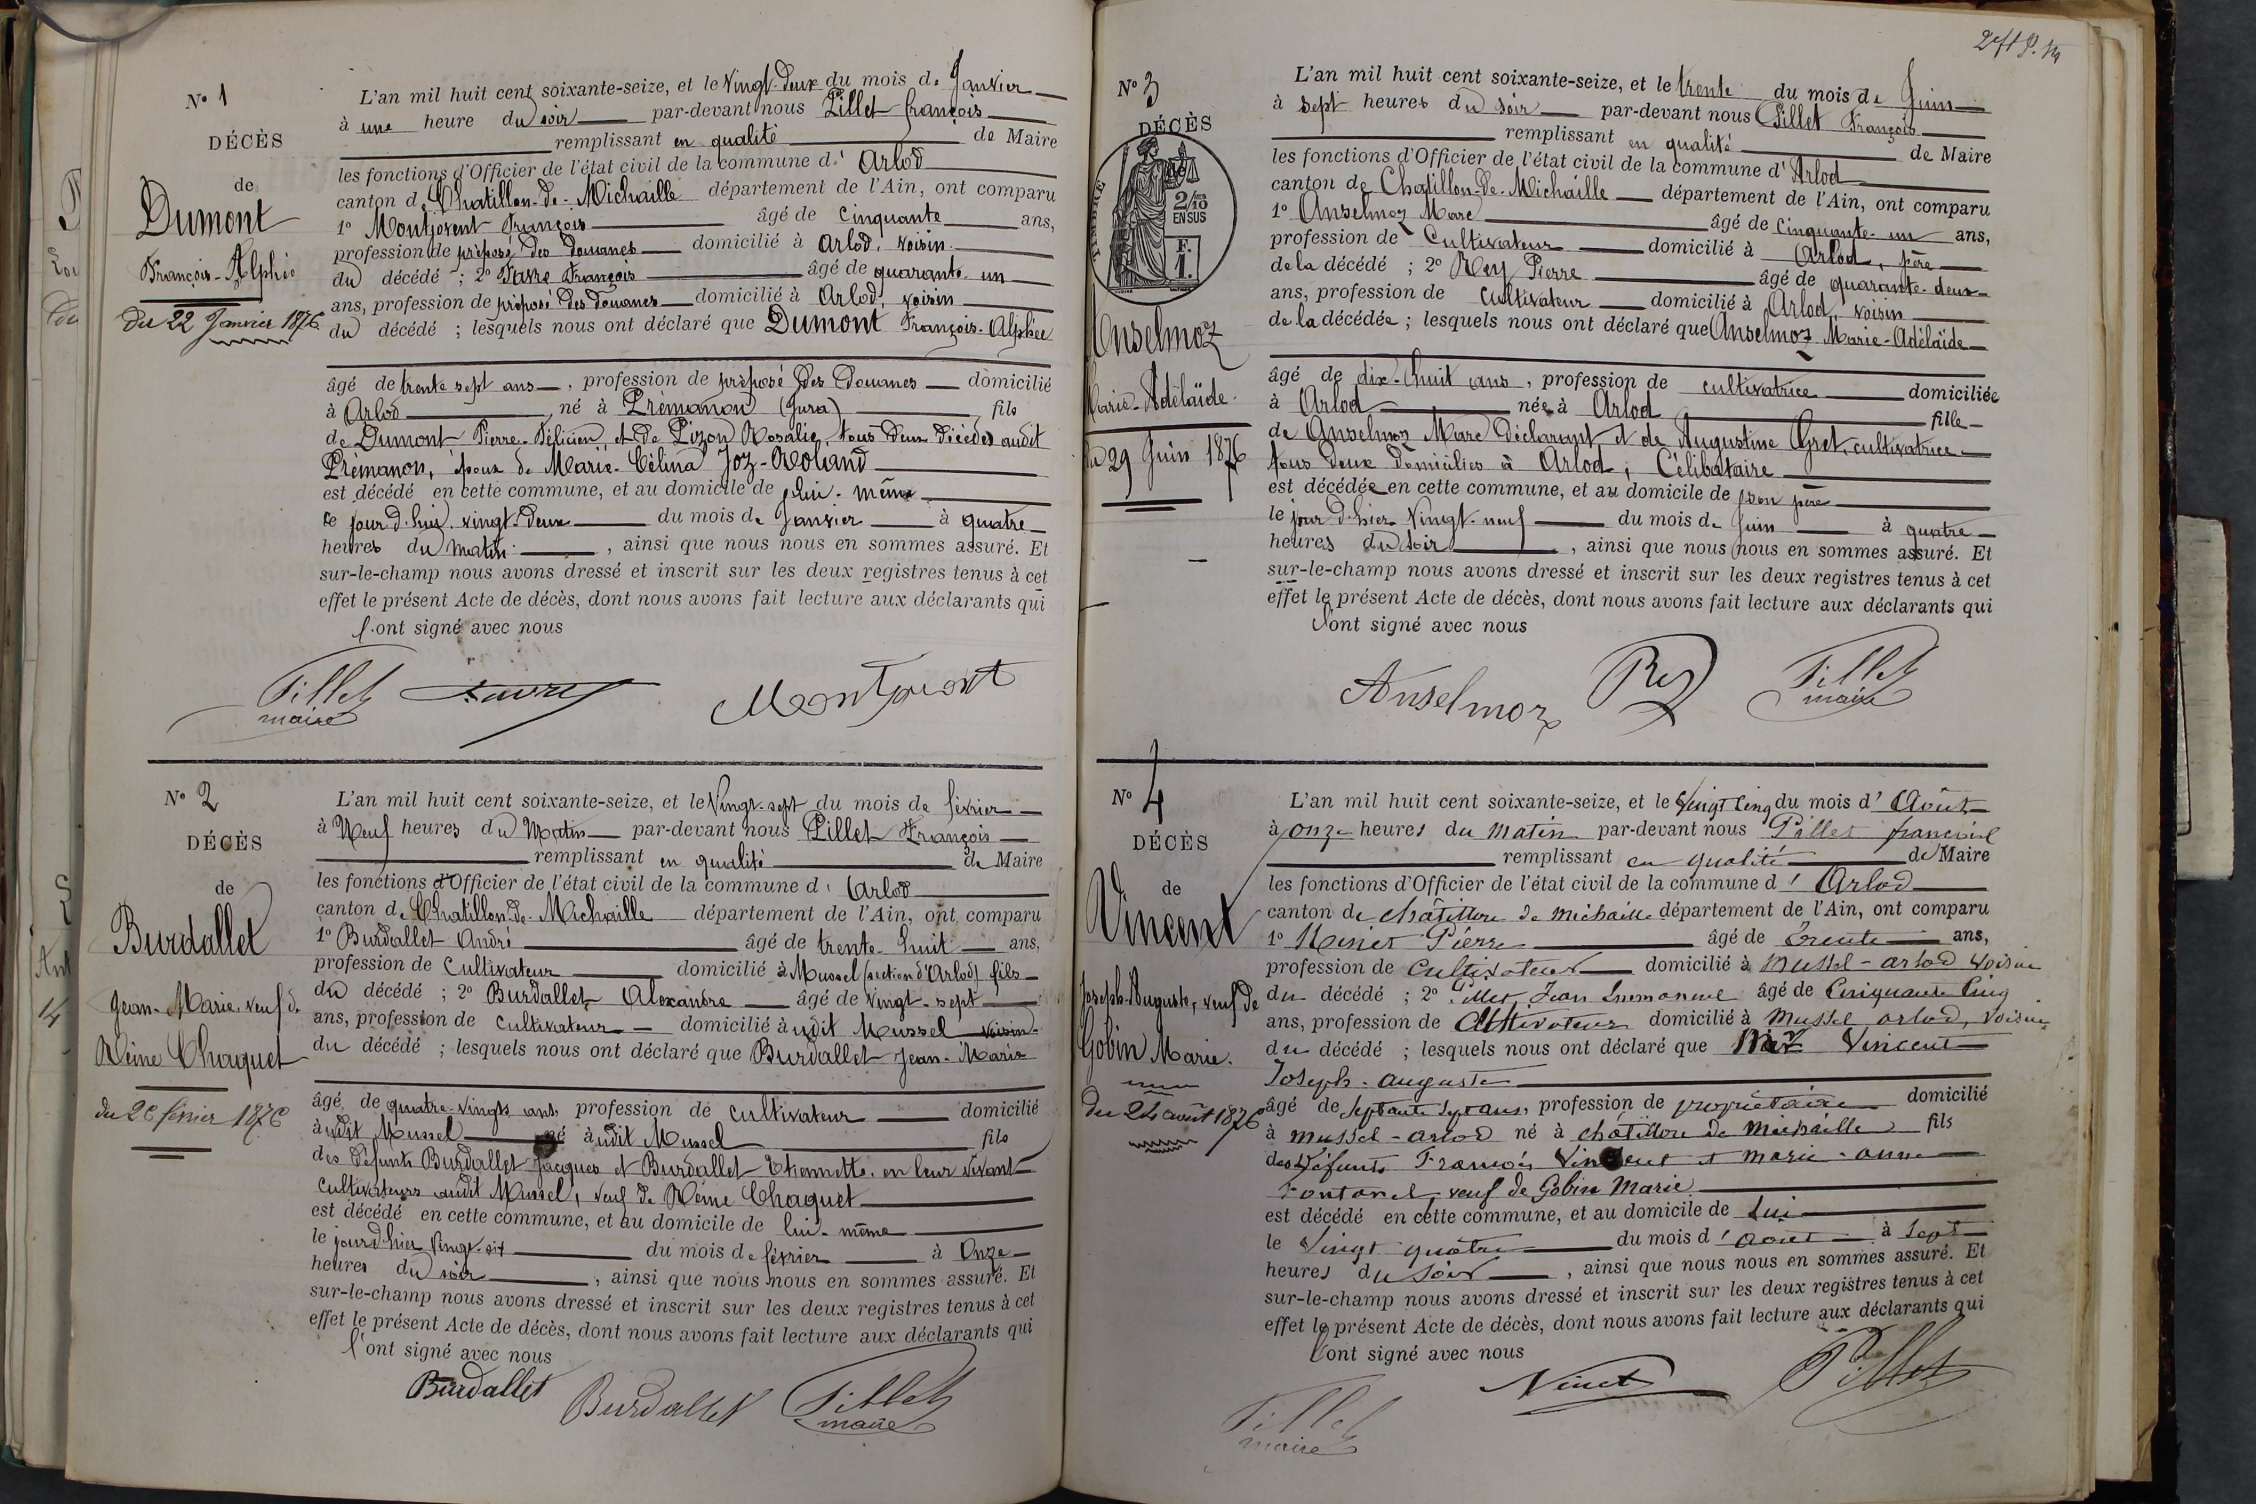 N° 1
DÉCÈS
de
Dumont
François-Alphée
du 22 Janvier 1876
L'an mil huit cent soixante-seize, et le Vingt-deux du mois de Janvier
à une heure du soir par-devant nous Pillet François
remplissant en qualité de Maire
les fonctions d'Officier de l'état civil de la commune d' Arlod
canton de Chatillon-de-Michaille département de l'Ain, ont comparu
1° Montjovent François âgé de Cinquante ans,
profession de préposé des douanes domicilié à Arlod, voisin
du décédé ; 2° Favre François âgé de quarante-un
ans, profession de préposé des douanes domicilié à Arlod, voisin
du décédé ; lesquels nous ont déclaré que Dumont François-Alphée
âgé de trente sept ans, profession de préposé des douanes domicilié
à Arlod né à Prémanon (Jura) fils
de Dumont Pierre-Félicien, et de Pizon Rosalie, tous deux décédés audit
Prémanon, époux de Marie-Célina Joz-Roland
est décédé en cette commune, et au domicile de lui-même
le jour d'hui vingt-deux du mois de Janvier à quatre
heures du matin, ainsi que nous nous en sommes assuré. Et
sur-le-champ nous avons dressé et inscrit sur les deux registres tenus à cet
effet le présent Acte de décès, dont nous avons fait lecture aux déclarants qui
l'ont signé avec nous
Pillet Favre Montjovent
maire
N° 2
DÉCÈS
de
Burdallet
Jean-Marie, veuf de
Reine Chaquet
du 26 février 1876
L'an mil huit cent soixante-seize, et le Vingt-sept du mois de février
à Neuf heures du Matin par-devant nous Pillet François
remplissant en qualité de Maire
les fonctions d'Officier de l'état civil de la commune d' Arlod
canton de Chatillon-de-Michaille département de l'Ain, ont comparu
1° Burdallet André âgé de trente-huit ans,
profession de Cultivateur domicilié à Mussel (section d'Arlod) fils
du décédé ; 2° Burdallet Alexandre âgé de vingt-sept
ans, profession de cultivateur domicilié à udit Mussel voisin
du décédé ; lesquels nous ont déclaré que Burdallet Jean-Marie
âgé de quatre-vingts ans, profession de cultivateur domicilié
à udit Mussel né à udit Mussel fils
des défunts Burdallet Jacques et Burdallet Etiennette, en leur vivant
cultivateurs audit Mussel, veuf de Reine Chaquet
est décédé en cette commune, et au domicile de lui-même
le jour d'hier Vingt-six du mois de février à Onze
heures du soir, ainsi que nous nous en sommes assuré. Et
sur-le-champ nous avons dressé et inscrit sur les deux registres tenus à cet
effet le présent Acte de décès, dont nous avons fait lecture aux déclarants qui
l'ont signé avec nous
Burdallet Burdallet Pillet
maire
N° 3
DÉCÈS
TIMBRE
2/10
EN SUS
F.
1.
Anselmoz
Marie-Adélaïde.
du 29 Juin 1876
L'an mil huit cent soixante-seize, et le trente du mois de Juin
à sept heures du soir par-devant nous Pillet François
remplissant en qualité de Maire
les fonctions d'Officier de l'état civil de la commune d' Arlod
canton de Chatillon-de-Michaille département de l'Ain, ont comparu
1° Anselmoz Marc âgé de Cinquante-un ans,
profession de Cultivateur domicilié à Arlod, père
de la décédé ; 2° Rey Pierre âgé de quarante-deux
ans, profession de cultivateur domicilié à Arlod, voisin
de la décédée ; lesquels nous ont déclaré que Anselmoz Marie-Adélaïde
âgé de dix-huit ans, profession de cultivatrice domiciliée
à Arlod née à Arlod fille
de Anselmoz Marc déclarant, et de Augustine Gret, cultivatrice
tous deux domiciliés à Arlod, Célibataire
est décédée en cette commune, et au domicile de son père
le jour d'hier Vingt-neuf du mois de Juin à quatre
heures du soir, ainsi que nous nous en sommes assuré. Et
sur-le-champ nous avons dressé et inscrit sur les deux registres tenus à cet
effet le présent Acte de décès, dont nous avons fait lecture aux déclarants qui
l'ont signé avec nous
Anselmoz Rey Pillet
maire
N° 4
DÉCÈS
de
Vincent
Joseph-Auguste, veuf de
Gobin Marie.
du 24 août 1876
L'an mil huit cent soixante-seize, et le Vingt Cinq du mois d' Août
à onze heures du Matin par-devant nous Pillet françois
remplissant en qualité de Maire
les fonctions d'Officier de l'état civil de la commune d' Arlod
canton de châtillon de michaille département de l'Ain, ont comparu
1° Ninet Pierre âgé de Trente ans,
profession de Cultivateur domicilié à Mussel-arlod Voisin
du décédé ; 2° Pillet Jean Emmanuel âgé de Cinquante Cinq
ans, profession de Cultivateur domicilié à Mussel arlod, voisin
du décédé ; lesquels nous ont déclaré que Vincent
Joseph-auguste
âgé de septante sept ans, profession de propriétaire domicilié
à mussel-arlod né à châtillon de Michaille fils
des défunts François Vincent et marie-anne
Fontanel, veuf de Gobin Marie
est décédé en cette commune, et au domicile de Lui
le Vingt quatre du mois d' aout à sept
heures du soir, ainsi que nous nous en sommes assuré. Et
sur-le-champ nous avons dressé et inscrit sur les deux registres tenus à cet
effet le présent Acte de décès, dont nous avons fait lecture aux déclarants qui
l'ont signé avec nous
Ninet Pillet
Pillet
maire